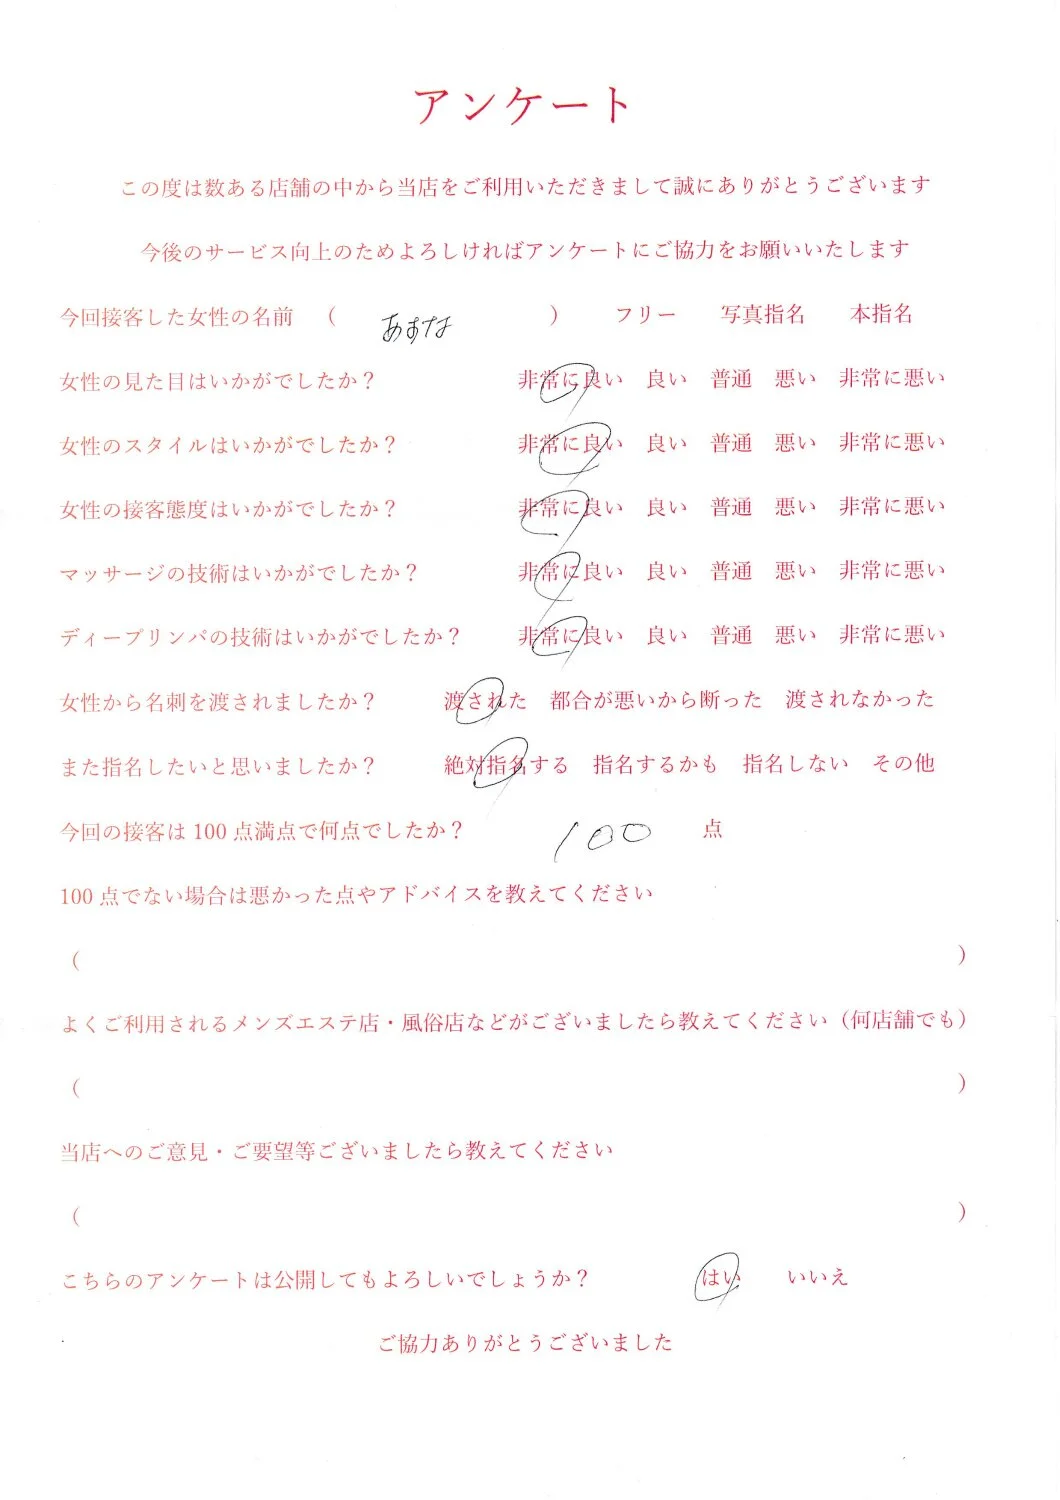 アンケート
この度は数ある店舗の中から当店をご利用いただきまして誠にありがとうございます
今後のサービス向上のためよろしければアンケートにご協力をお願いいたします
今回接客した女性の名前 （ あすな ） フリー 写真指名 本指名
女性の見た目はいかがでしたか？ 非常に良い 良い 普通 悪い 非常に悪い
女性のスタイルはいかがでしたか？ 非常に良い 良い 普通 悪い 非常に悪い
女性の接客態度はいかがでしたか？ 非常に良い 良い 普通 悪い 非常に悪い
マッサージの技術はいかがでしたか？ 非常に良い 良い 普通 悪い 非常に悪い
ディープリンパの技術はいかがでしたか？ 非常に良い 良い 普通 悪い 非常に悪い
女性から名刺を渡されましたか？ 渡された 都合が悪いから断った 渡されなかった
また指名したいと思いましたか？ 絶対指名する 指名するかも 指名しない その他
今回の接客は 100 点満点で何点でしたか？ 100 点
100 点でない場合は悪かった点やアドバイスを教えてください
（ ）
よくご利用されるメンズエステ店・風俗店などがございましたら教えてください（何店舗でも）
（ ）
当店へのご意見・ご要望等ございましたら教えてください
（ ）
こちらのアンケートは公開してもよろしいでしょうか？ はい いいえ
ご協力ありがとうございました